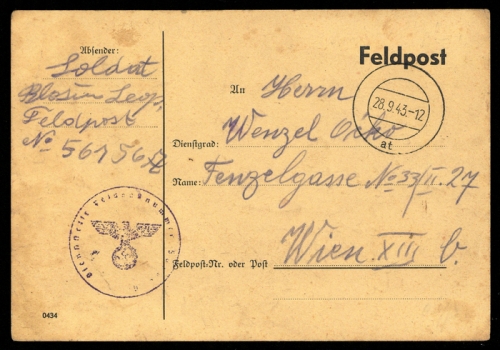 Absender:
Soldat
Feldpost
No 56156
Feldpost
28.9.43.-12
at
An Herrn
Dienstgrad: Wenzel
Name: Fenzelgasse No 33/II.27
Wien XIII b.
Feldpost-Nr. oder Post
Dienststelle Feldpostnummer
0434